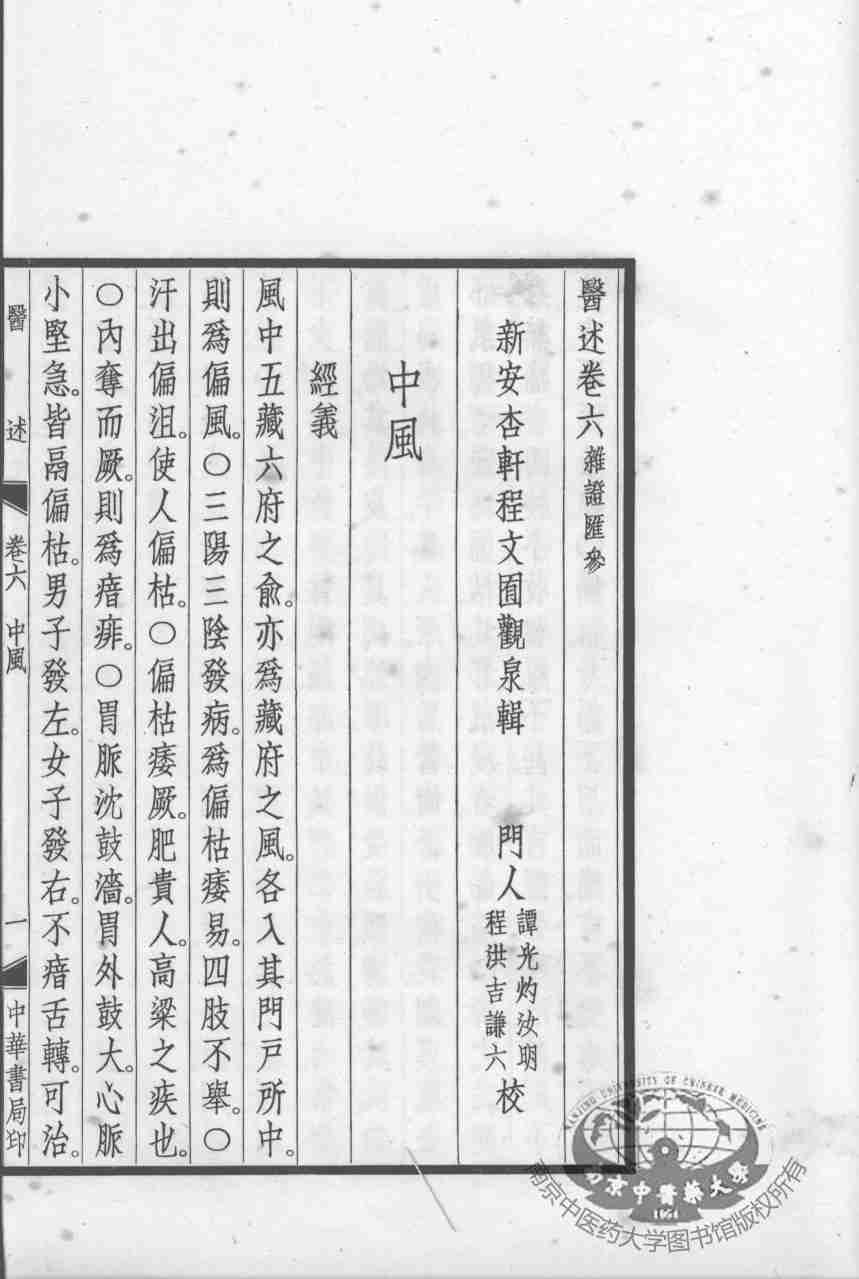 醫述卷六 雜證匯參
新安杏軒程文囿觀泉輯 門人
譚光灼汝明
程洪吉謙六
校
中風
經義
風中五藏六府之俞。亦爲藏府之風。各入其門戸所中。
則爲偏風。○三陽三陰發病。爲偏枯痿易。四肢不舉。○
汗出偏沮。使人偏枯。○偏枯痿厥。肥貴人。高粱之疾也。
○內奪而厥。則爲瘖痱。○胃脈沈鼓濇。胃外鼓大。心脈
小堅急。皆鬲偏枯。男子發左。女子發右。不瘖舌轉。可治。
醫述 卷六 中風 一 中華書局印
NANJING UNIVERSITY OF CHINESE MEDICINE
南京中醫藥大學
1954
南京中医药大学图书馆版权所有